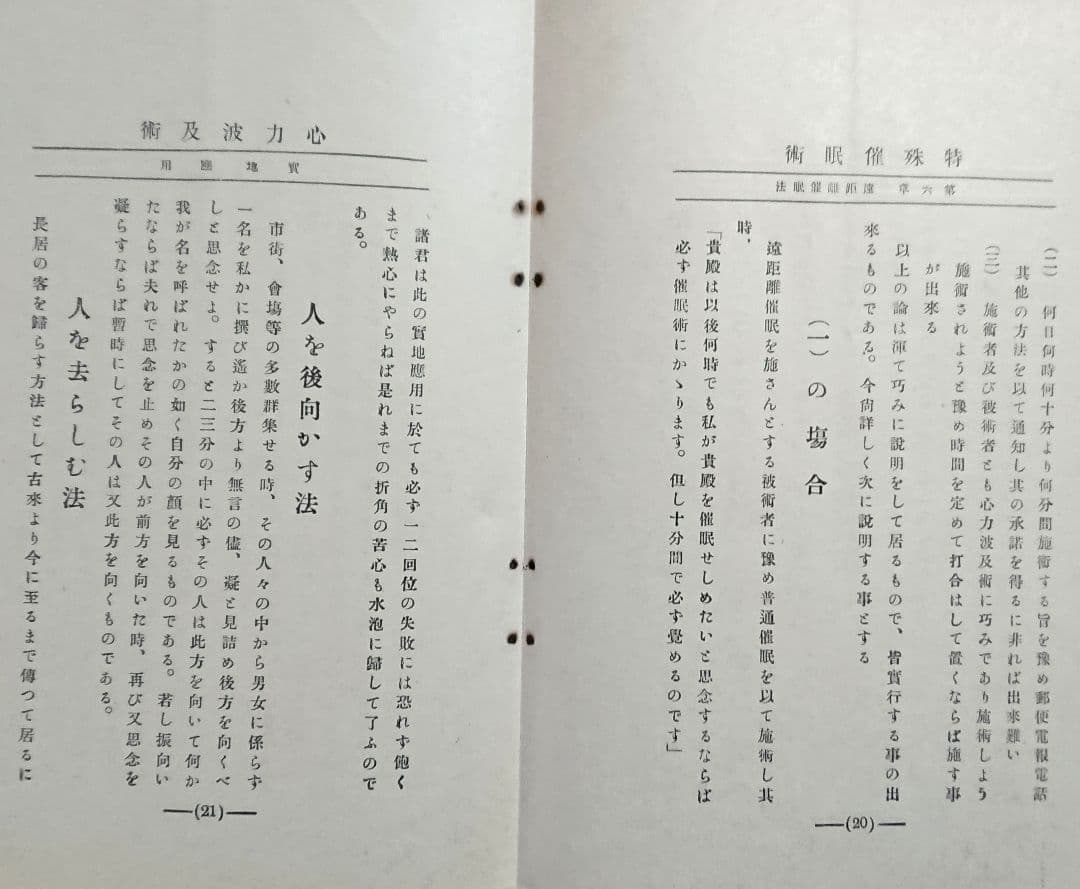 特殊催眠術
第六章 遠距離催眠法
(二) 何日何時何十分より何分間施術する旨を豫め郵便電報電話
其他の方法を以て通知し其の承諾を得るに非れば出來難い
(三) 施術者及び被術者とも心力波及術に巧みであり施術しよう
施術されようと豫め時間を定めて打合はして置くならば施す事
が出來る
以上の論は渾て巧みに說明をして居るもので、皆實行する事の出
來るものである。今尙詳しく次に說明する事とする
(一)の塲合
遠距離催眠を施さんとする被術者に豫め普通催眠を以て施術し其
時，
「貴殿は以後何時でも私が貴殿を催眠せしめたいと思念するならば
必ず催眠術にかゝります。但し十分間で必ず覺めるのです」
(20)
心力波及術
實地應用
諸君は此の實地應用に於ても必ず一二回位の失敗には恐れず飽く
まで熱心にやらねば是れまでの折角の苦心も水泡に歸して了ふので
ある。
人を後向かす法
市街、會塲等の多數群集せる時、その人々の中から男女に係らず
一名を私かに撰び遙か後方より無言の儘、凝と見詰め後方を向くべ
しと思念せよ。すると二三分の中に必ずその人は此方を向いて何か
我が名を呼ばれたかの如く自分の顏を見るものである。若し振向い
たならば夫れで思念を止めその人が前方を向いた時、再び又思念を
凝らすならば暫時にしてその人は又此方を向くものである。
人を去らしむ法
長居の客を歸らす方法として古來より今に至るまで傳つて居るに
(21)